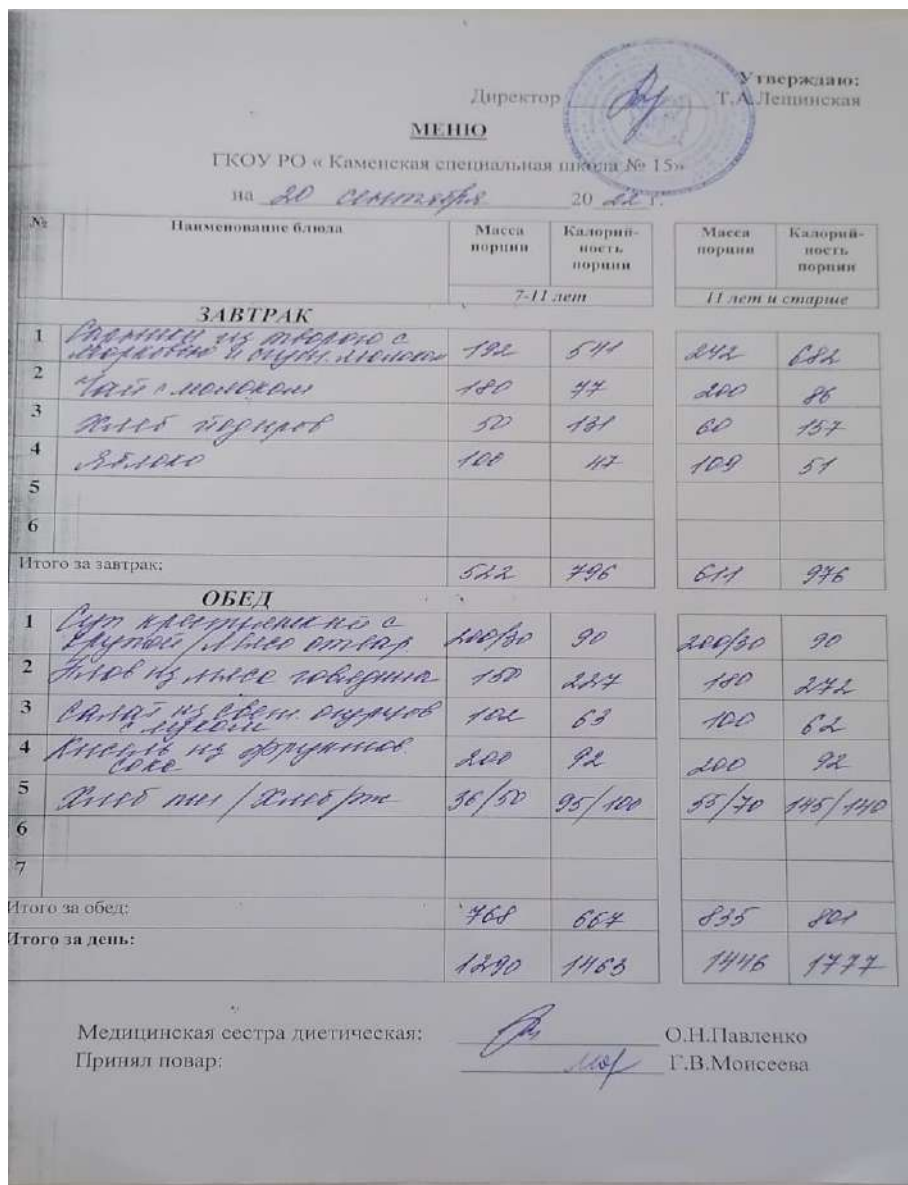 Утверждаю:
Директор Т.А.Лещинская
МЕНЮ
ГКОУ РО « Каменская специальная школа № 15»
на 20 сентября 20 22 г.
№ Наименование блюда Масса порции Калорий-ность порции Масса порции Калорий-ность порции
7-11 лет 11 лет и старше
ЗАВТРАК
1 из творога с
морковью и сгущ. молоком 192 541 242 682
2 Чай с молоком 180 77 200 86
3 Хлеб йодиров 50 131 60 157
4 Яблоко 100 47 109 51
5
6
Итого за завтрак: 522 796 611 976
ОБЕД
1 Суп крестьянский с
крупой / мясо отвар 200/30 90 200/30 90
2 Плов из мяса говядина 150 227 180 272
3 Салат из свеж. огурцов
с луком 102 63 100 62
4 Кисель из фруктов
сока 200 92 200 92
5 Хлеб пш / Хлеб рж 36/50 95/100 55/70 145/140
6
7
Итого за обед: 768 667 835 801
Итого за день: 1290 1463 1446 1777
Медицинская сестра диетическая: О.Н.Павленко
Принял повар: Г.В.Моисеева